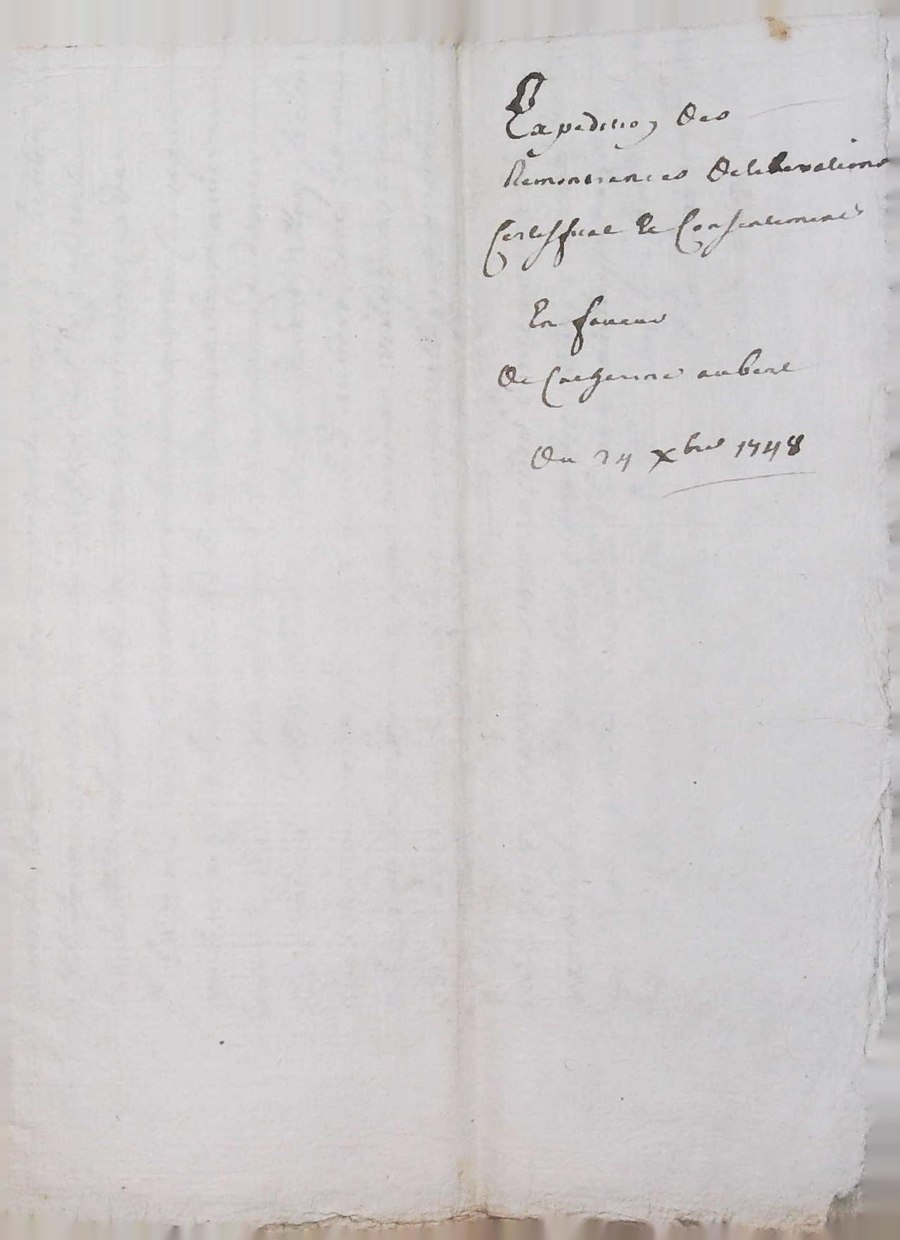 Expedition des
Remontrances deliberations
Certifficat et Consentement
En faveur
de Catherine aubert
Du 24 Xbre 1748